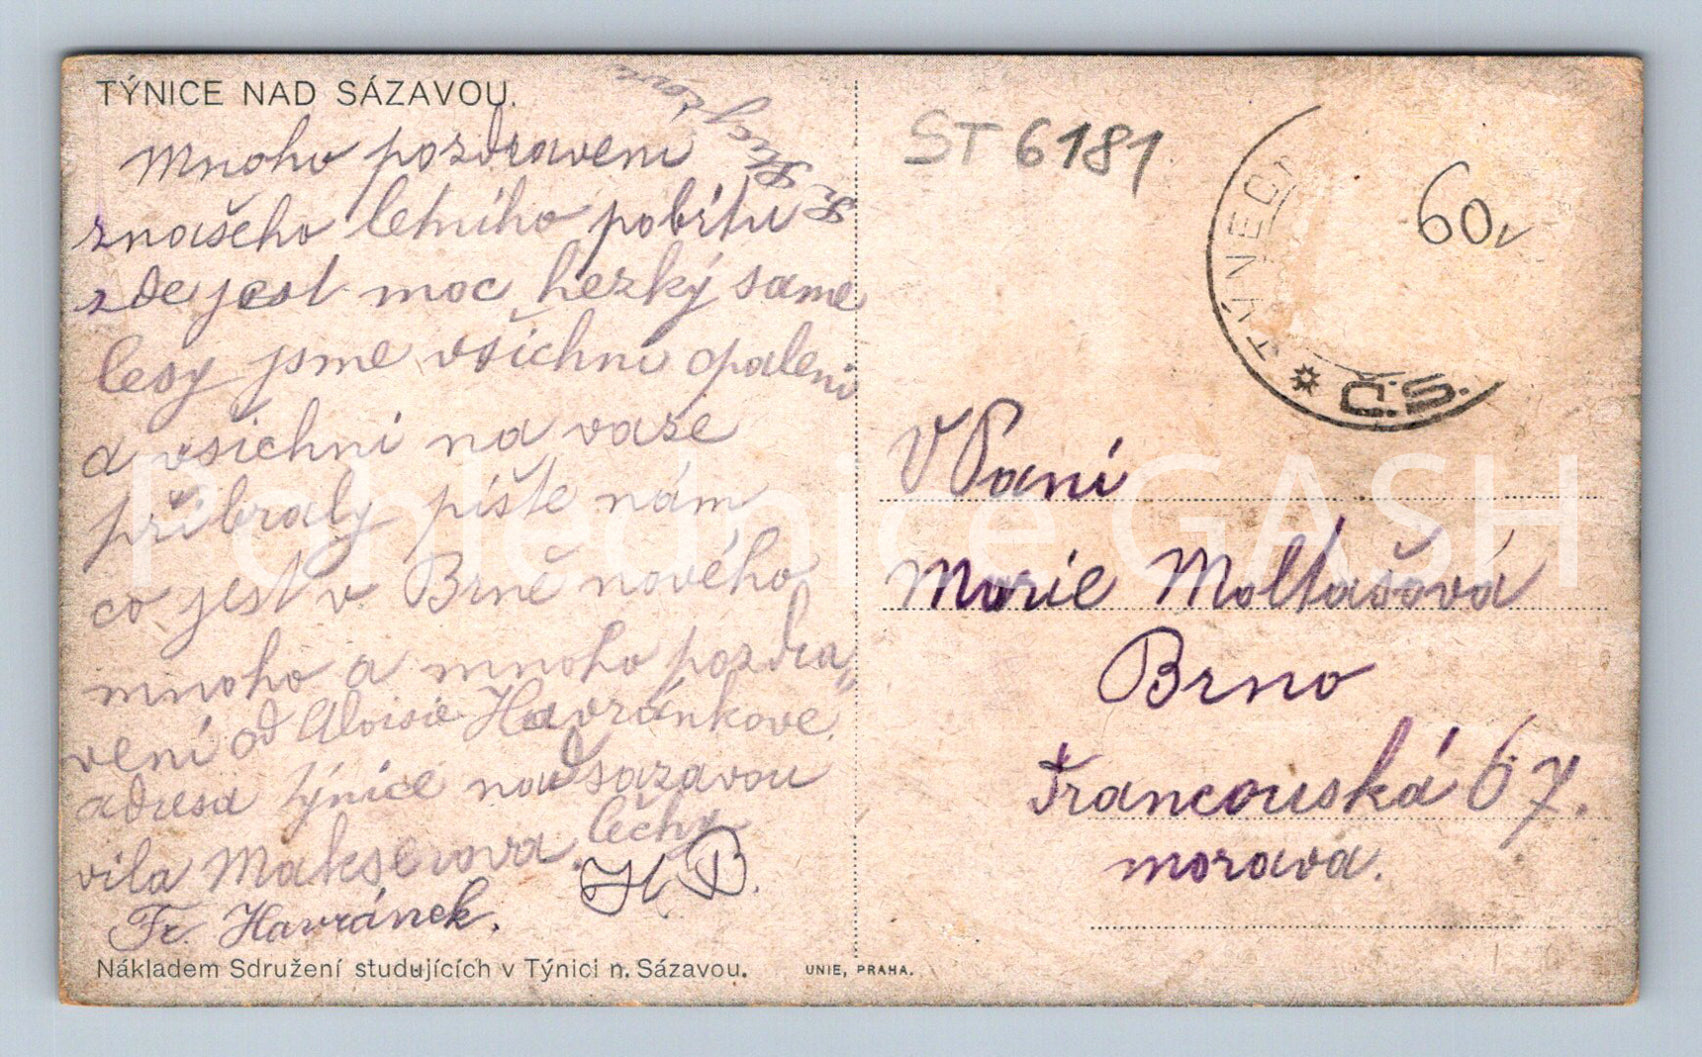 TÝNICE NAD SÁZAVOU.
Mnoho pozdraveni
znašeho letního pobitu
zde jest moc hezký same
lesy jsme všichni opaleni
a všichni na vaze
přibraly pište nám
co jest v Brně nového
mnoho a mnoho pozdra„
vení od Aloisie Havránkove.
adresa Týnice nad sazavou
vila Makserova. lechy
Fr. Havránek. H B.
Nákladem Sdružení studujících v Týnici n. Sázavou.
UNIE, PRAHA.
ST 6181
60,-
TÝNEC
Č.S.
V Paní
Marie Moltašová
Brno
Francouská 67.
morava.
Pohlednice GASH